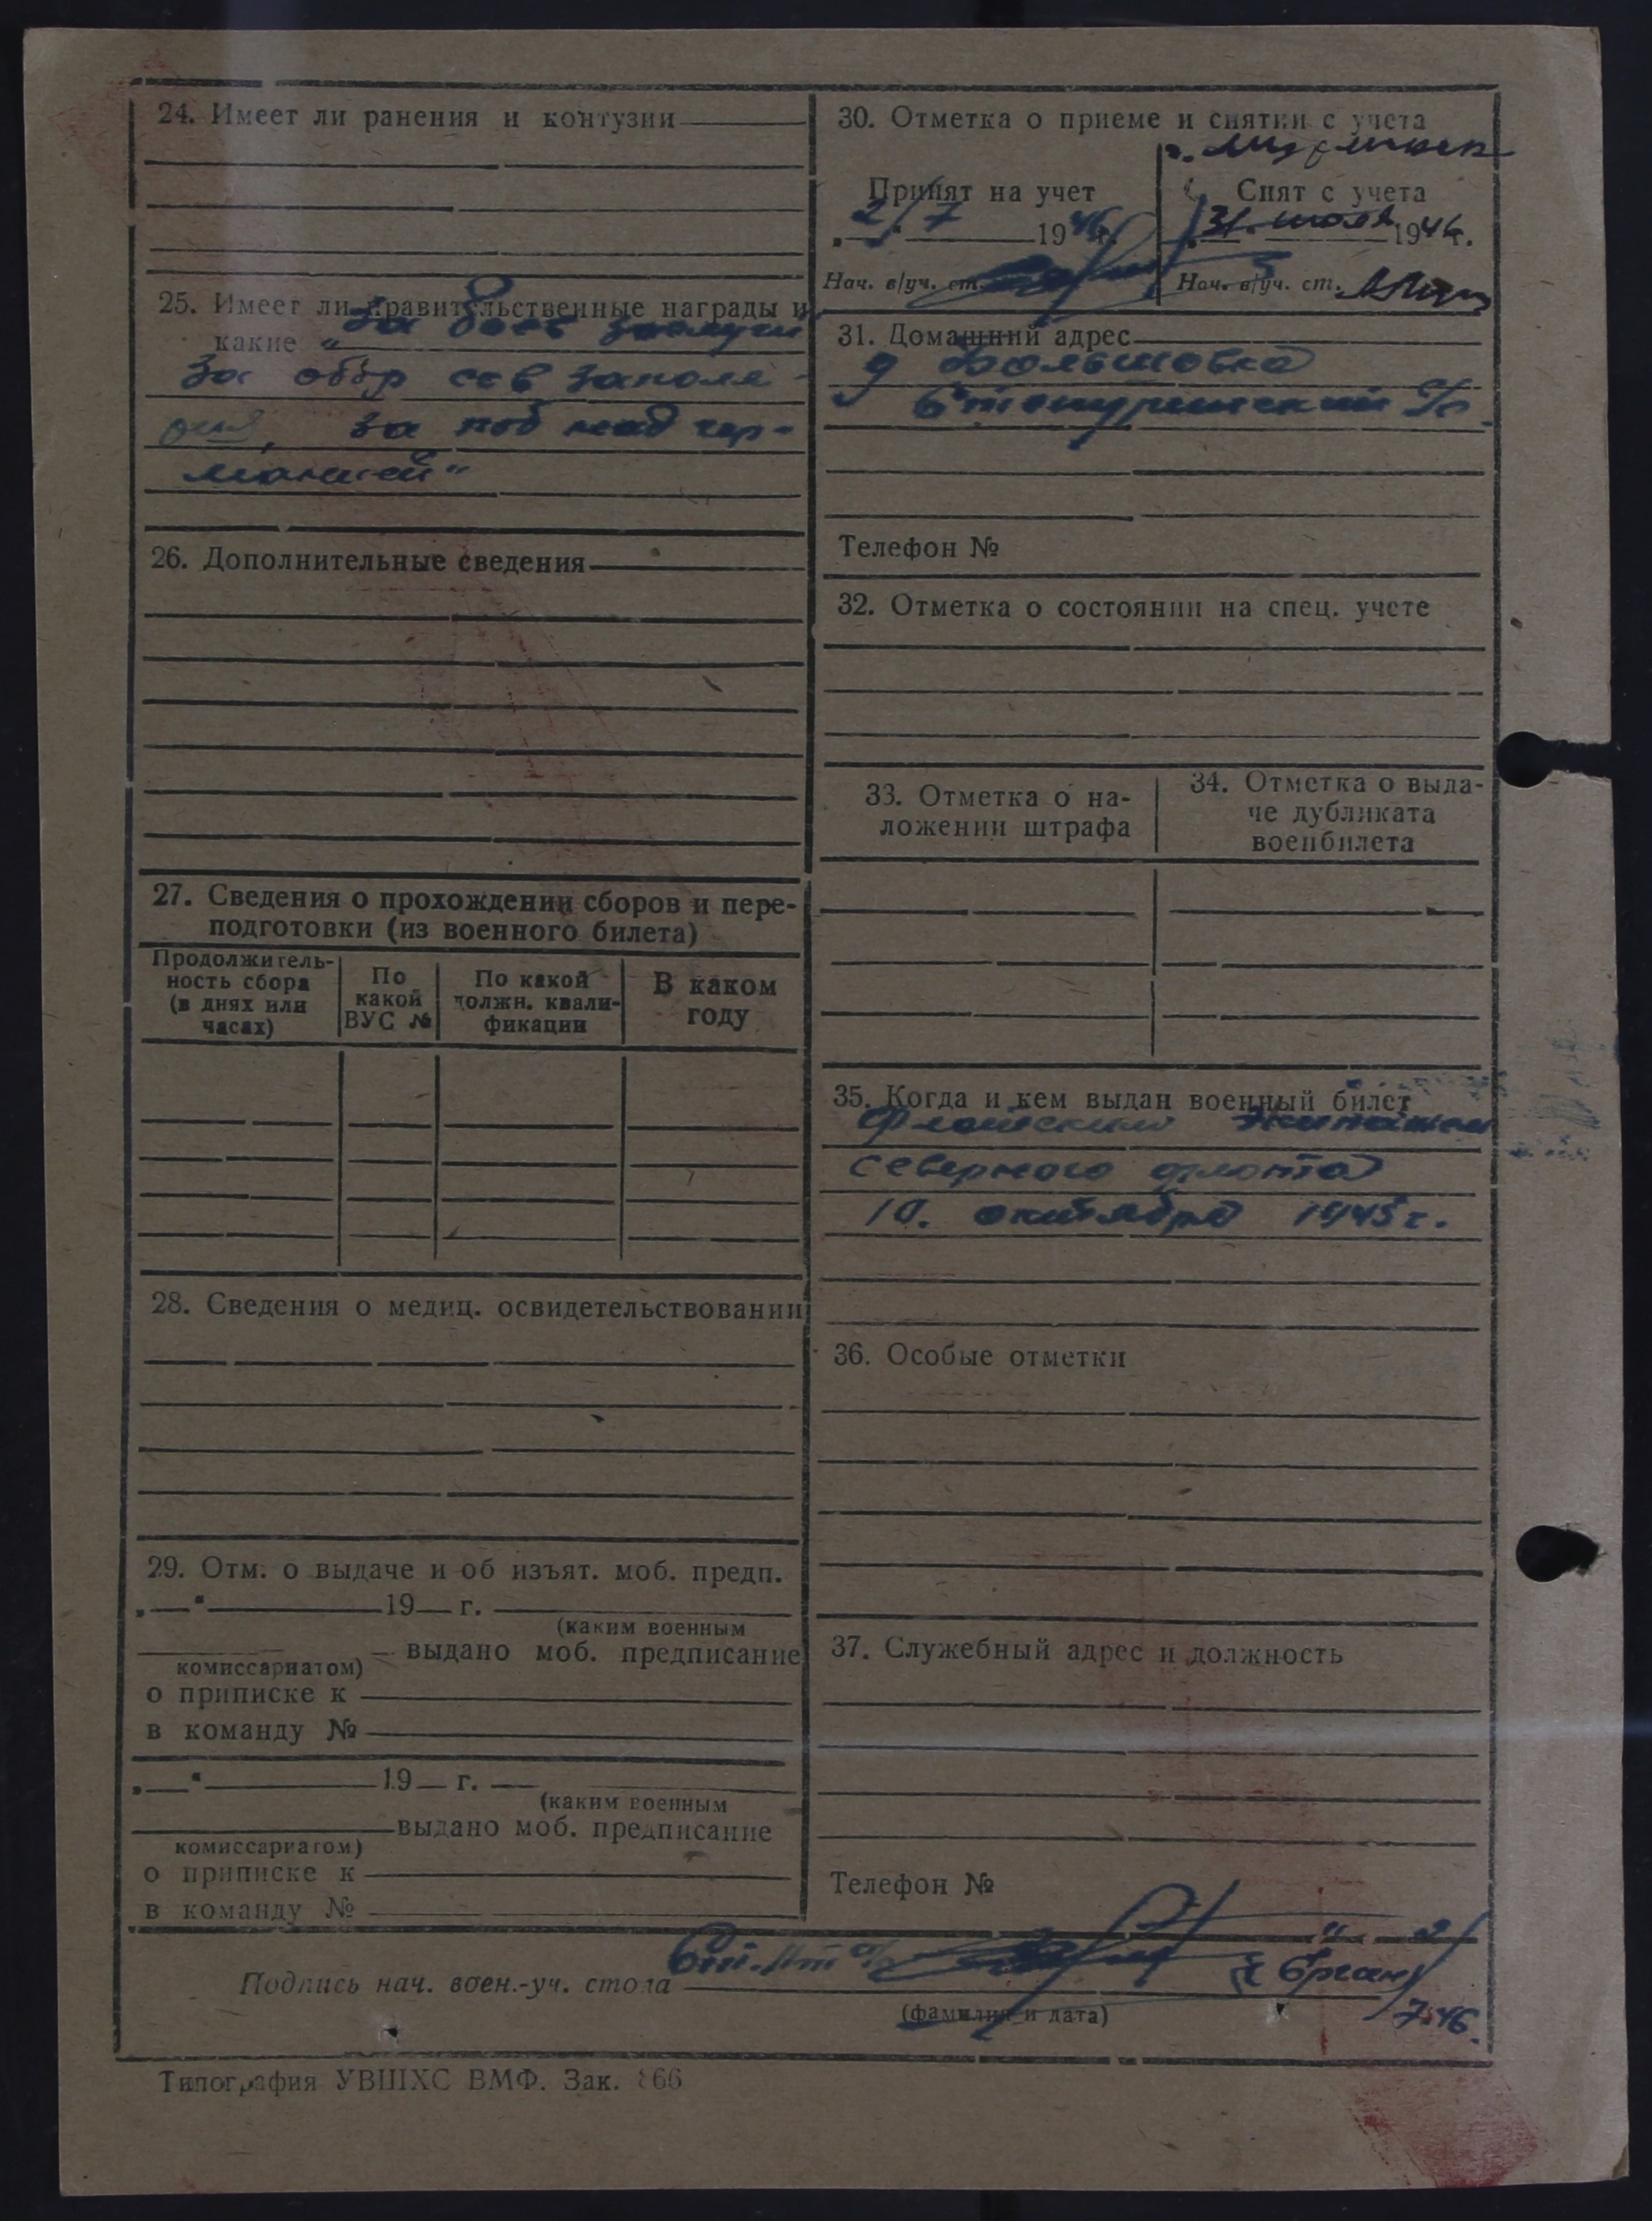 24. Имеет ли ранения и контузии
25. Имеет ли правительственные награды и
какие „За боев заслуги
За обор сов заполя-
рья, за поб над гер-
манией“
26. Дополнительные сведения
27. Сведения о прохождении сборов и пере-
подготовки (из военного билета)
Продолжитель-
ность сбора
(в днях или
часах)
По
какой
ВУС №
По какой
должн. квали-
фикации
В каком
году
28. Сведения о медиц. освидетельствовании
29. Отм. о выдаче и об изъят. моб. предп.
„ “ 19 г.
(каким военным
выдано моб. предписание
комиссариатом)
о приписке к
в команду №
„ “ 19 г.
(каким военным
выдано моб. предписание
комиссариатом)
о приписке к
в команду №
30. Отметка о приеме и снятии с учета
Принят на учет
2/7 1946 г.
Нач. в/уч. ст.
г. Мурманск
Снят с учета
31. июля 1946 г.
Нач. в/уч. ст.
31. Домашний адрес
д Большовка
Телефон №
32. Отметка о состоянии на спец. учете
33. Отметка о на-
ложении штрафа
34. Отметка о выда-
че дубликата
военбилета
35. Когда и кем выдан военный билет
Флотский Экипажем
северного флота
10. октября 1945 г.
36. Особые отметки
37. Служебный адрес и должность
Телефон №
Подпись нач. воен.-уч. стола
(фамилия и дата)
7.46.
Типография УВШХС ВМФ. Зак. 866